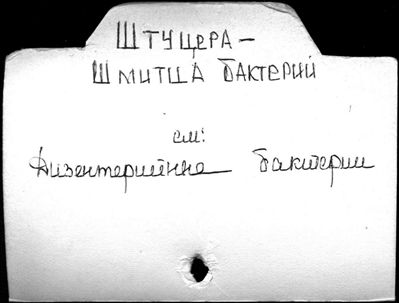 ШТУЦЕРА –
ШМИТЦА БАКТЕРИЙ
см:
Дизентерийные бактерии